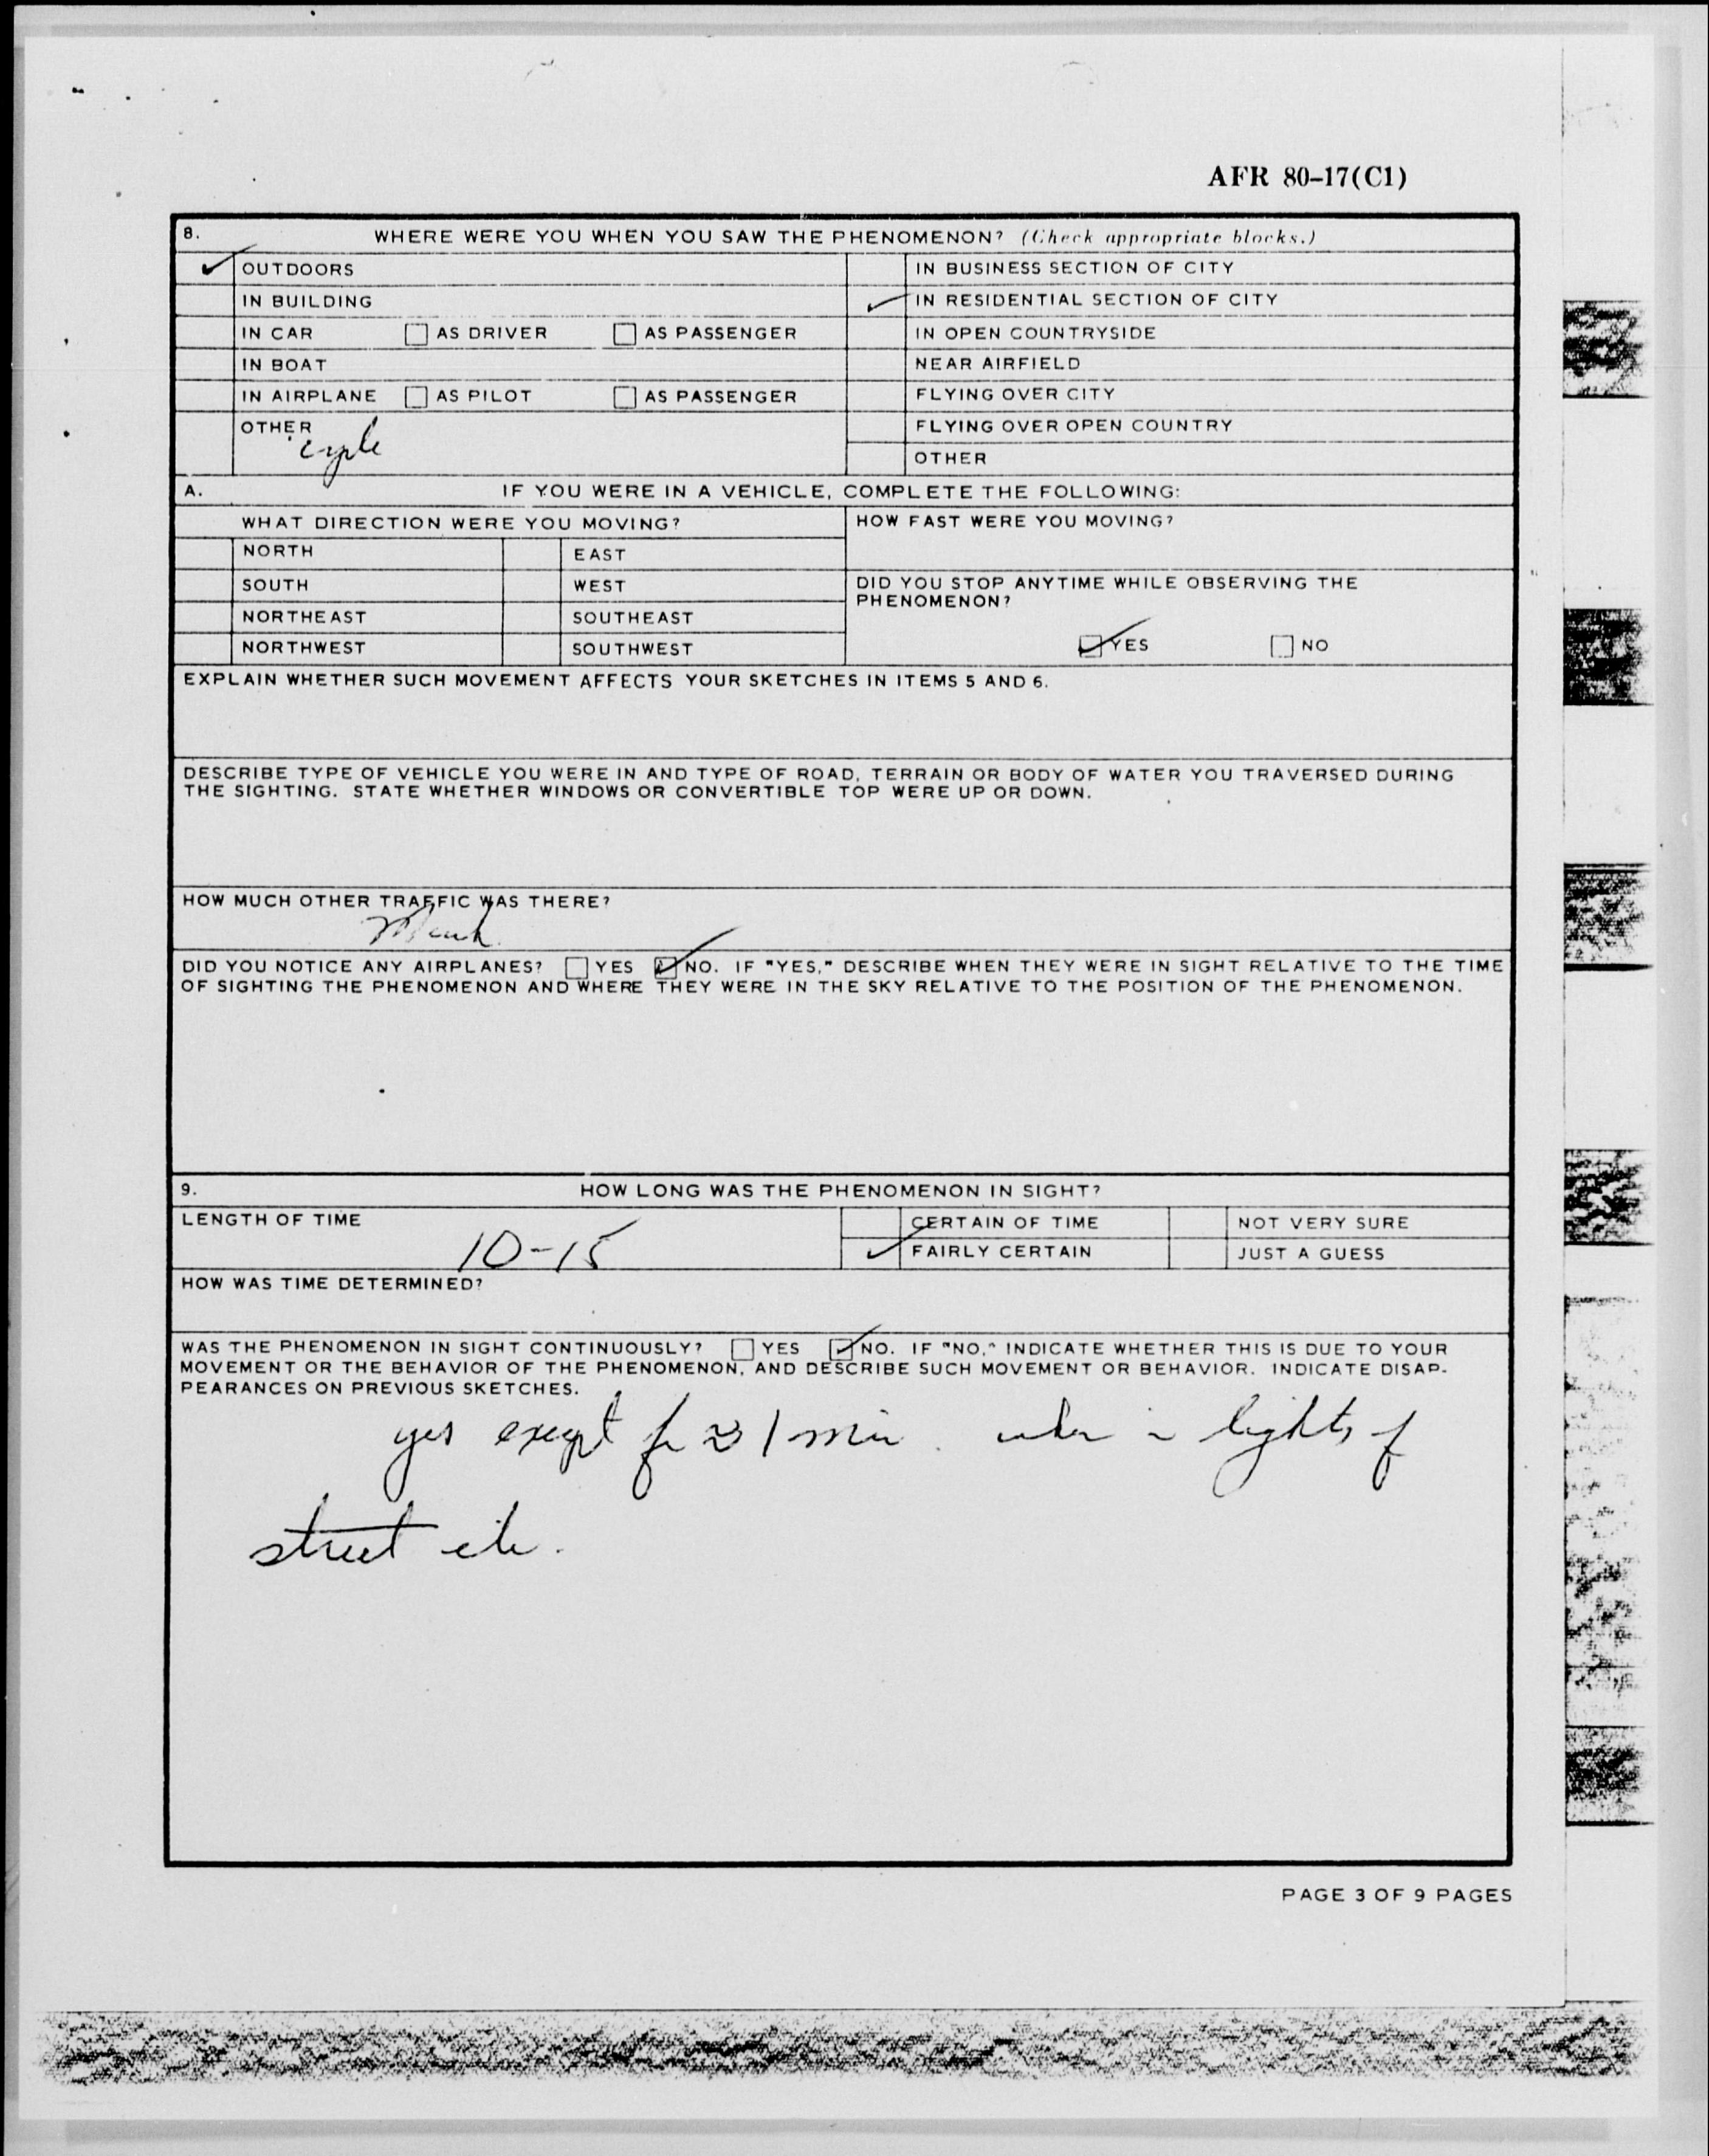 AFR 80-17(C1)
8. WHERE WERE YOU WHEN YOU SAW THE PHENOMENON? (Check appropriate blocks.)
✓ OUTDOORS
IN BUSINESS SECTION OF CITY
IN BUILDING
✓ IN RESIDENTIAL SECTION OF CITY
IN CAR ☐ AS DRIVER ☐ AS PASSENGER
IN OPEN COUNTRYSIDE
IN BOAT
NEAR AIRFIELD
IN AIRPLANE ☐ AS PILOT ☐ AS PASSENGER
FLYING OVER CITY
OTHER
cycle
FLYING OVER OPEN COUNTRY
OTHER
A. IF YOU WERE IN A VEHICLE, COMPLETE THE FOLLOWING:
WHAT DIRECTION WERE YOU MOVING?
HOW FAST WERE YOU MOVING?
NORTH EAST
SOUTH WEST
NORTHEAST SOUTHEAST
NORTHWEST SOUTHWEST
DID YOU STOP ANYTIME WHILE OBSERVING THE
PHENOMENON?
☑ YES ☐ NO
EXPLAIN WHETHER SUCH MOVEMENT AFFECTS YOUR SKETCHES IN ITEMS 5 AND 6.
DESCRIBE TYPE OF VEHICLE YOU WERE IN AND TYPE OF ROAD, TERRAIN OR BODY OF WATER YOU TRAVERSED DURING
THE SIGHTING. STATE WHETHER WINDOWS OR CONVERTIBLE TOP WERE UP OR DOWN.
HOW MUCH OTHER TRAFFIC WAS THERE?
Much
DID YOU NOTICE ANY AIRPLANES? ☐ YES ☑ NO. IF "YES," DESCRIBE WHEN THEY WERE IN SIGHT RELATIVE TO THE TIME
OF SIGHTING THE PHENOMENON AND WHERE THEY WERE IN THE SKY RELATIVE TO THE POSITION OF THE PHENOMENON.
9. HOW LONG WAS THE PHENOMENON IN SIGHT?
LENGTH OF TIME
10-15
CERTAIN OF TIME NOT VERY SURE
✓ FAIRLY CERTAIN JUST A GUESS
HOW WAS TIME DETERMINED?
WAS THE PHENOMENON IN SIGHT CONTINUOUSLY? ☐ YES ☑ NO. IF "NO," INDICATE WHETHER THIS IS DUE TO YOUR
MOVEMENT OR THE BEHAVIOR OF THE PHENOMENON, AND DESCRIBE SUCH MOVEMENT OR BEHAVIOR. INDICATE DISAP-
PEARANCES ON PREVIOUS SKETCHES.
yes except for ≈ 1 min. when in lights of
street etc.
PAGE 3 OF 9 PAGES